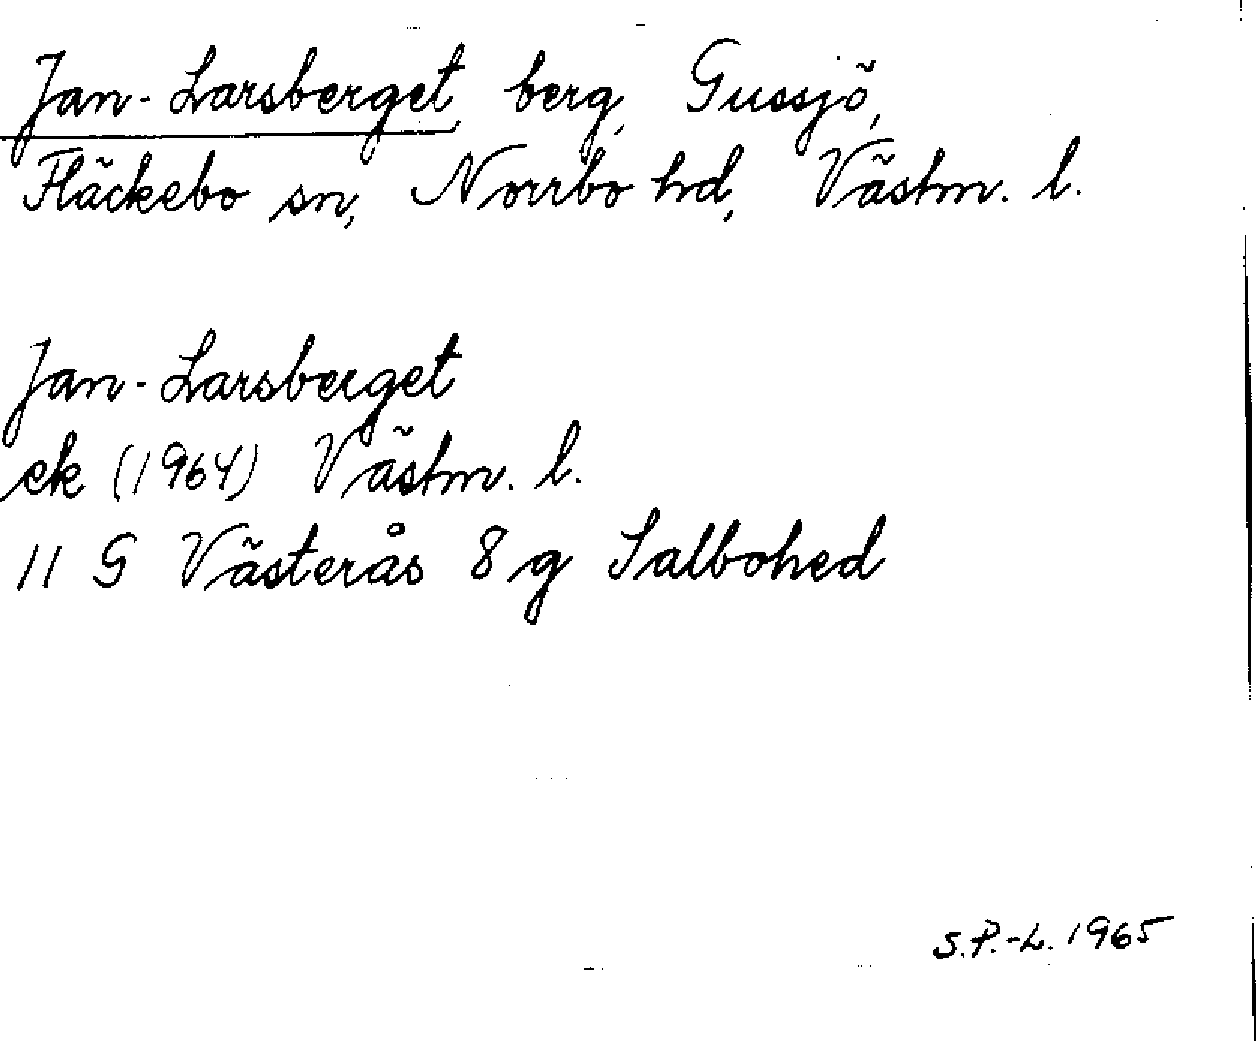 Jan-Larsberget, berg, Gussjö,
Fläckebo sn, Norrbo hd, Västm. l.
Jan-Larsberget
ek (1964) Västm. l.
11 G Västerås 8 g Salbohed
S.P.-L. 1965